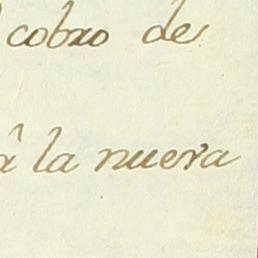 cobro de
â la nueva